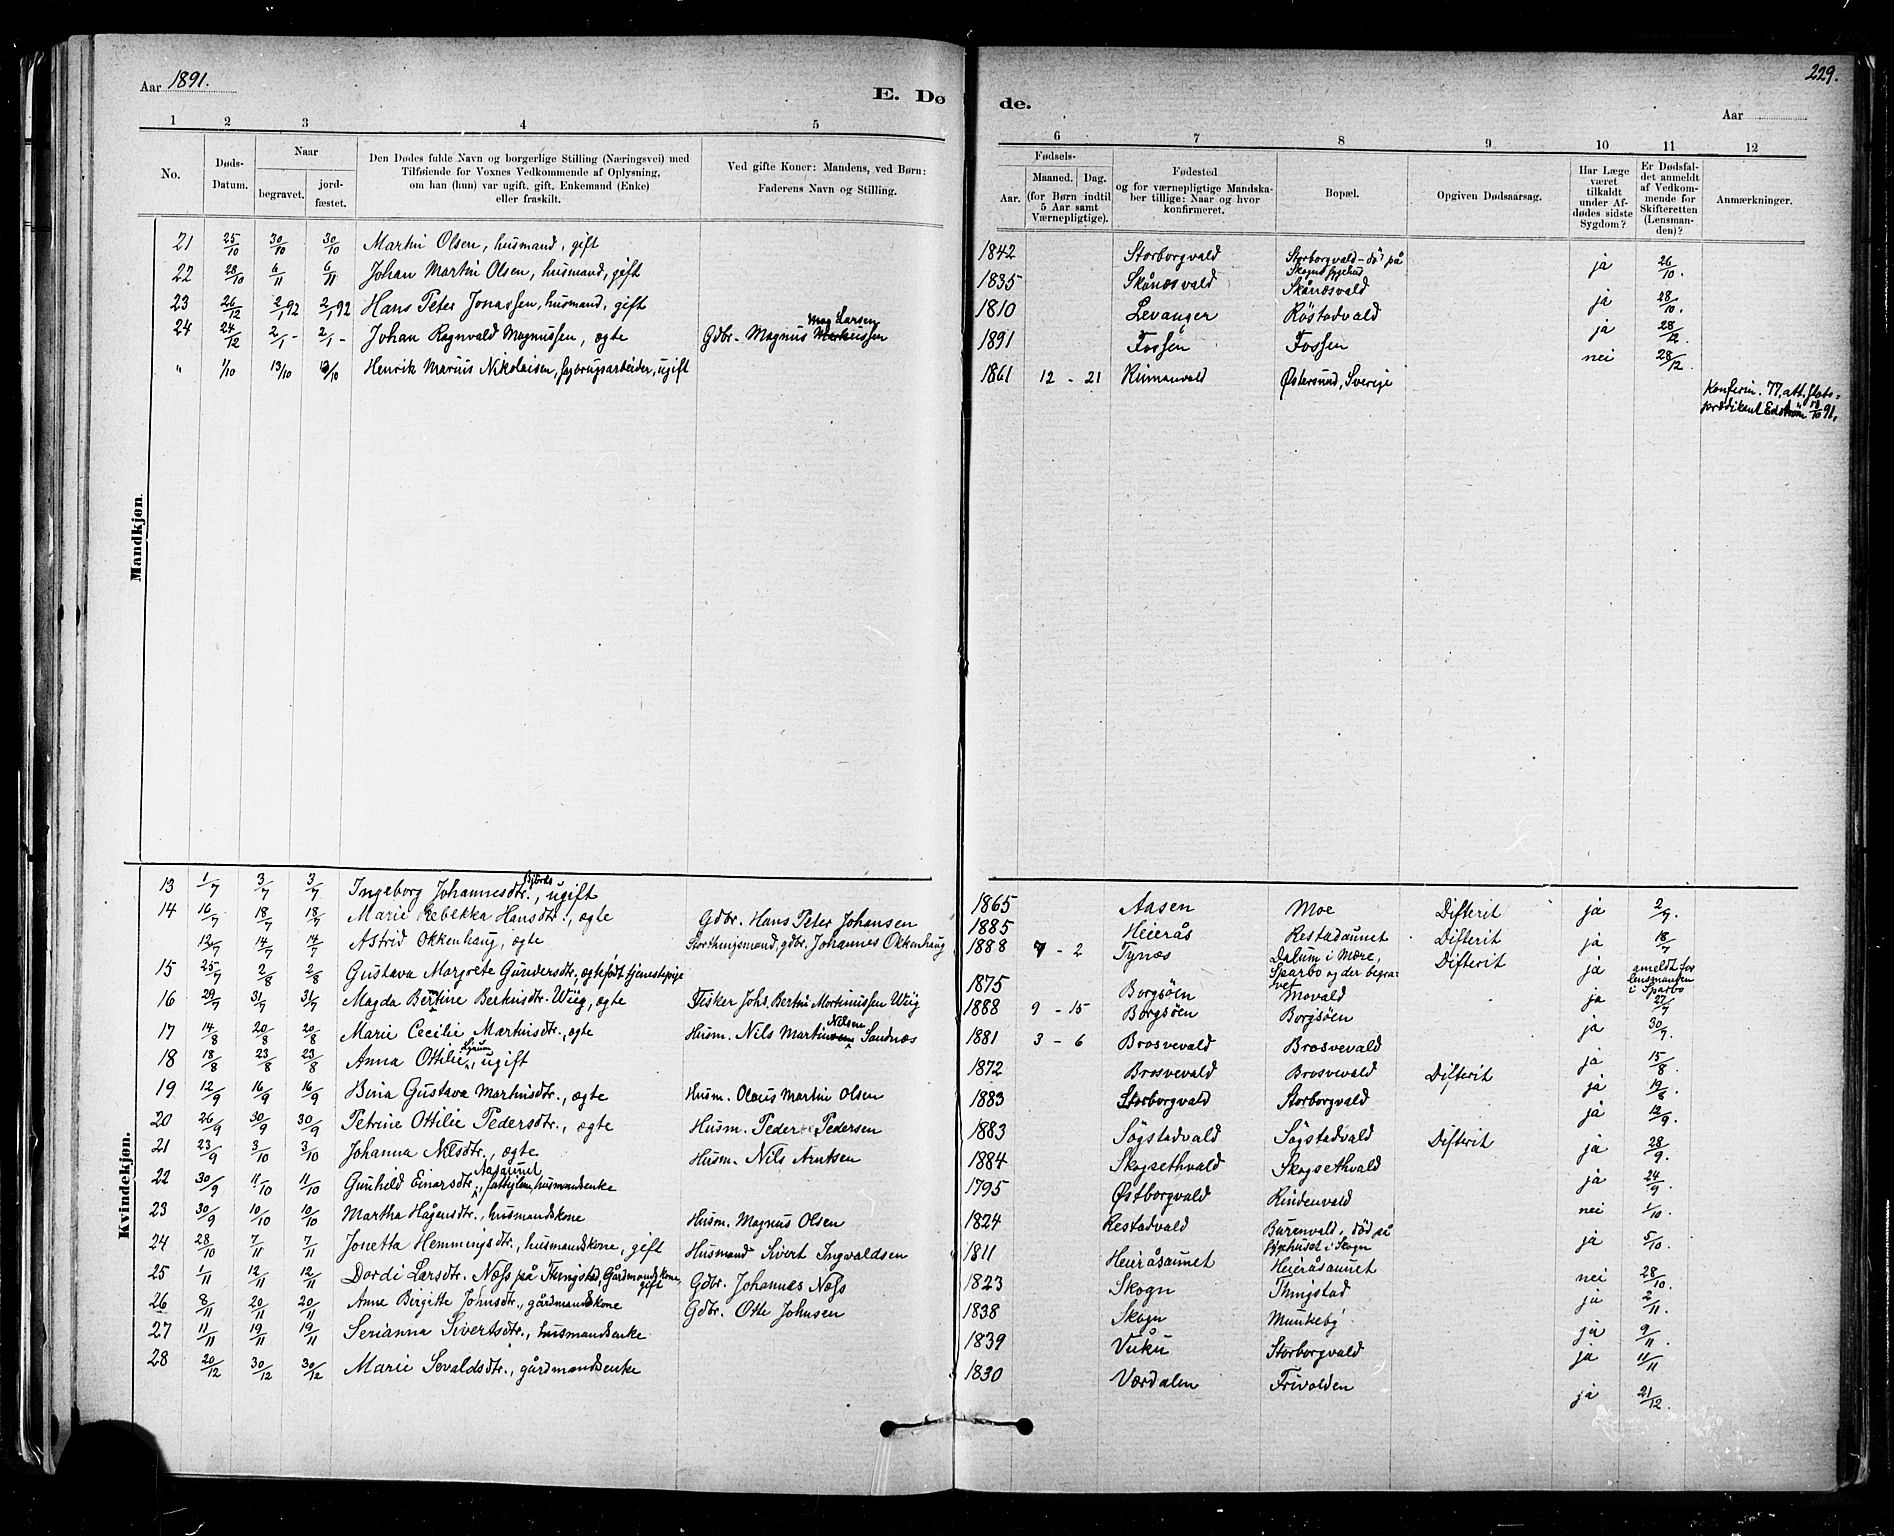 Aar 1891.
E. Dø
de.
229.
Aar
1 2 3 4 5
6 7 8 9 10 11 12
No.
Døds-Datum.
Naar
begravet.
jord-fæstet.
Den Dødes fulde Navn og borgerlige Stilling (Næringsvei) med
Tilføiende for Voxnes Vedkommende af Oplysning,
om han (hun) var ugift, gift, Enkemand (Enke)
eller fraskilt.
Ved gifte Koner: Mandens, ved Børn:
Faderens Navn og Stilling.
Fødsels-
Aar. Maaned. Dag.
(for Børn indtil
5 Aar samt
Værnepligtige).
Fødested
og for værnepligtige Mandska-
ber tillige: Naar og hvor
konfirmeret.
Bopæl.
Opgiven Dødsaarsag.
Har Læge
været
tilkaldt
under Af-
dødes sidste
Sygdom?
Er Dødsfal-
det anmeldt
af Vedkom-
mende for
Skifteretten
(Lensman-
den)?
Anmærkninger.
Mandkjøn.
21 25/10 30/10 30/10 Martin Olsen, husmand, gift 1842 Storborgvald Storborgvald - død på Skogns sygehus ja 26/10.
22 28/10 6/11 6/11 Johan Martin Olsen, husmand, gift 1835 Skånæsvald Skånæsvald ja 28/10.
23 26/12 2/1 92 2/1 92 Hans Peter Jonassen, husmand, gift 1810 Levanger Røstadvald ja 28/12
24 24/12 2/1 - 2/1 - Johan Ragnvald Magnussen, ægte Gdbr. Magnus Larsen 1891 Fossen Fossen nei 28/12.
" 1/10 13/10 13/10 Henrik Marius Nikolaisen, sagbrugsarbeider, ugift 1861 12 - 21 Rinnanvald Østersund, Sverige
Konferm. 77, att. slots-
prædikant Edström 13/10 91.
Kvindekjøn.
13 1/7 3/7 3/7 Ingeborg Johannesdtr., ugift 1865 Aasen Moe Difterit ja 2/7.
14 16/7 18/7 18/7 Marie Rebekka Hansdtr., ægte Gdbr. Hans Peter Johansen 1885 Heierås Restadaunet Difterit ja 18/7
12/7 14/7 14/7 Astrid Okkenhaug, ægte Storthingsmand, gdbr. Johannes Okkenhaug 1888 7 - 2 Tynæs Dalum i Mære, Sparbo og der begravet Difterit ja anmeldt for lensmanden i Sparbo
15 25/7 2/8 2/8 Gustava Margrete Gundersdtr., ægtefødt tjenestepige 1875 Borgsøen Movald ja 27/7
16 29/7 31/7 31/7 Magda Bertine Bertinsdtr. Wiig, ægte Fisker Johs. Bertin Mortinussen Wiig 1888 9 - 15 Borgsøen Borgsøen ja 30/7.
17 14/8 20/8 20/8 Marie Cecilie Martinsdtr., ægte Husm. Nils Martin Nilsen Sandnæs 1881 3 - 6 Brosvevald Brosvevald ja 15/8.
18 18/8 23/8 23/8 Anna Ottilie, ugift 1872 Brosvevald Brosvevald Difterit ja 19/8
19 12/9 16/9 16/9 Bina Gustava Martinsdtr., ægte Husm. Olaus Martin Olsen 1883 Storborgvald Storborgvald ja 12/9.
20 26/9 30/9 30/9 Petrine Ottilie Pedersdtr., ægte Husm. Peder Pedersen 1883 Søgstadvald Søgstadvald Difterit ja 28/9.
21 23/9 3/10 3/10 Johanna Nilsdtr., ægte Husm. Nils Arntsen 1884 Skogsethvald Skogsethvald ja 24/9.
22 30/9 11/10 11/10 Gunhild Einarsdtr., fattiglem, husmandsenke 1795 Østborgvald Rindenvald nei 1/10.
23 30/9 10/10 10/10 Martha Hågensdtr., husmandskone Husm. Magnus Olsen 1824 Restadvald Burenvald, død på sygehuset i Skogn ja 5/10.
24 28/10 7/11 7/11 Jonetta Hemmingsdtr., husmandskone, gift Husmand Sivert Ingvaldsen 1811 Heieråsaunet Heieråsaunet nei 28/10.
25 1/11 12/11 12/11 Dordi Larsdtr. Næss på Thingstad, Gårdmandskone, gift Gdbr. Johannes Næss 1823 Skogn Thingstad ja 2/11.
26 8/11 20/11 20/11 Anne Birgitte Johnsdtr., gårdmandskone Gdbr. Otte Johnsen 1838 Skogn Munkeby ja 9/11
27 11/11 19/11 19/11 Serianna Sivertsdtr., husmandsenke 1839 Vuku Storborgvald ja 11/11
28 20/12 30/12 30/12 Marie Sevaldsdtr., gårdmandsenke 1830 Værdalen Frivolden ja 21/12.